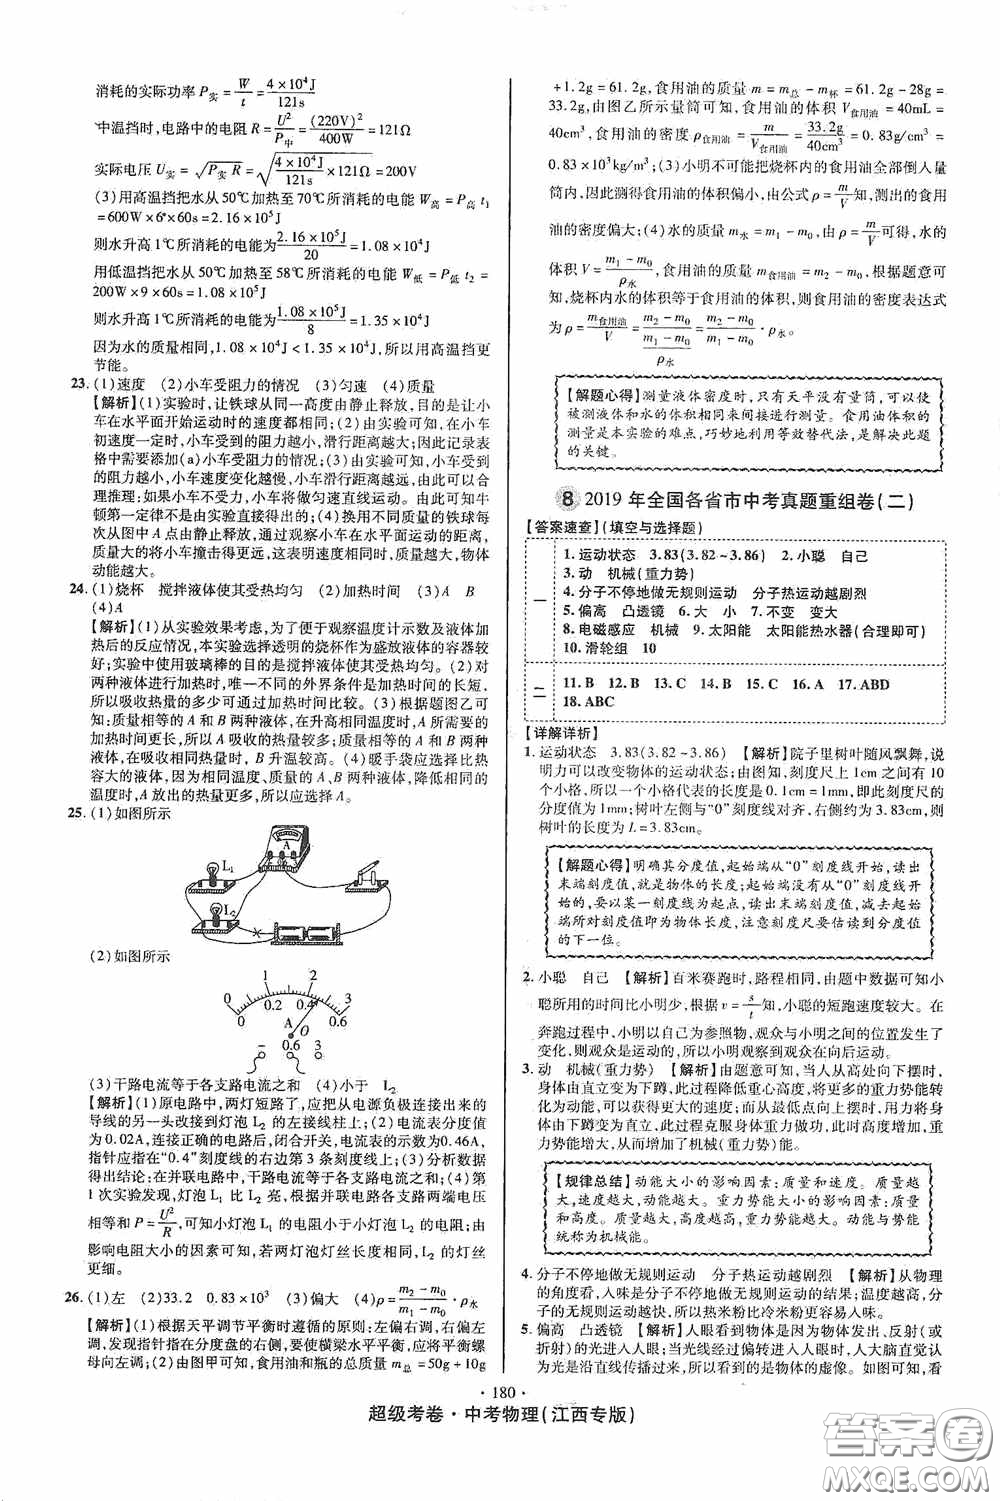 消耗的实际功率 P实 = W/t = 4×10⁴J/121s
中温挡时,电路中的电阻 R = U²/P中 = (220V)²/400W = 121Ω
实际电压 U实 = √(P实R) = √(4×10⁴J/121s × 121Ω) = 200V
(3)用高温挡把水从50℃加热至70℃所消耗的电能 W高 = P高 t₁
= 600W×6×60s = 2.16×10⁵J
则水升高1℃所消耗的电能为 2.16×10⁵J/20 = 1.08×10⁴J
用低温挡把水从50℃加热至58℃所消耗的电能 W低 = P低 t₂ =
200W×9×60s = 1.08×10⁵J
则水升高1℃所消耗的电能为 1.08×10⁵J/8 = 1.35×10⁴J
因为水的质量相同,1.08×10⁴J<1.35×10⁴J,所以用高温挡更
节能。
23. (1)速度 (2)小车受阻力的情况 (3)匀速 (4)质量
【解析】(1)实验时,让铁球从同一高度由静止释放,目的是让小
车在水平面开始运动时的速度都相同;(2)由实验可知,在小车
初速度一定时,小车受到的阻力越小,滑行距离越大;因此记录表
格中需要添加(a)小车受阻力的情况;(3)由实验可知,小车受到
的阻力越小,小车速度变化越慢,小车滑行距离越大,假如小车不
受阻力作用,则小车滑行距离无限远,做匀速直线运动,可见牛
顿第一定律不是由实验直接得到的;(4)换用质量不同的铁球每
次从图中A点由静止释放,通过观察小车在水平面运动的距离,
会发现将小车撞击得更远,说明在速度一定时,质量越大,物体
动能越大。
24. (1)烧杯 搅拌液体使其受热均匀 (2)加热时间 (3)A B
(4)A
【解析】(1)从实验效果考虑,为了便于观察温度计示数及液体加
热后的反应情况,本实验选择透明的烧杯作为盛放液体的容器较
好;实验中使用玻璃棒的目的是搅拌液体使其受热均匀。(2)对
两种液体进行加热时,唯一不同的外界条件是加热时间的长短,
所以吸收热量的多少可通过加热时间比较。(3)根据题图乙可
知:质量相等的A和B两种液体,在升高相同温度时,A需要的加
热时间更长,所以A吸收的热量较多;质量相等的A和B两种液
体,在吸收相同热量时,B升温较高。(4)暖手袋应选择比热
容大的液体,因为相同温度、质量相等的A和B两种液体,降低相同的
温度时,A放出的热量更多,所以应选择A。
25. (1)如图所示
L₁
A
L₂
(2)如图所示
0 1 2 3
0 0.2 0.4 0.6
A
O
− 0.6 3
(3)干路电流等于各支路电流之和 (4)小于 L₂
【解析】(1)原电路中,两灯短路了,应把从电源负极连接出来的
导线的另一头改接到灯泡L₂的左接线柱上;(2)电流表分度值
为0.02A,连接正确的电路后,闭合开关,电流表的示数为0.46A,
指针应指在“0.4”刻度线的右边第3条刻度线上;(3)分析数据
得出结论:在并联电路中,干路电流等于各支路电流之和;(4)第
1次实验发现,灯泡L₁比L₂亮,根据并联电路各支路两端电压
相等和P = U²/R,可知小灯泡L₁的电阻小于小灯泡L₂的电阻;由
影响电阻大小的因素可知,若两灯泡灯丝长度相同,L₂的灯丝
更细。
26. (1)左 (2)33.2 0.83×10³ (3)偏大 (4)ρ = (m₂−m₀)/(m₁−m₀)·ρ水
【解析】(1)根据天平调节平衡时遵循的原则:左偏右调,右偏左
调,发现指针指在分度盘的右侧,要使横梁水平平衡,应将平衡螺
母向左调;(2)由图甲可知,食用油和瓶的总质量 m总 = 50g+10g
+1.2g = 61.2g,食用油的质量 m = m总−m杯 = 61.2g−28g =
33.2g,由图乙所示量筒可知,食用油的体积 V食用油 = 40mL =
40cm³,食用油的密度 ρ食用油 = m/V食用油 = 33.2g/40cm³ = 0.83g/cm³ =
0.83×10³kg/m³;(3)小明不可能把烧杯内的食用油全部倒入量
筒内,因此测得食用油的体积偏小,由公式 ρ = m/V 可知,测出的食用
油的密度偏大;(4)水的质量 m水 = m₁−m₀,由 ρ = m/V 可得,水的
体积 V = (m₁−m₀)/ρ水,食用油的质量 m食用油 = m₂−m₀,根据题意可
知,烧杯内水的体积等于食用油的体积,则食用油的密度表达式
为 ρ = m食用油/V = (m₂−m₀)/((m₁−m₀)/ρ水) = (m₂−m₀)/(m₁−m₀)·ρ水。
【解题心得】测量液体密度时,只有天平没有量筒,可以使
被测液体和水的体积相同来间接进行测量。食用油体积的
测量是本实验的难点,巧妙地利用等效替代法,是解决此题
的关键。
8 2019年全国各省市中考真题重组卷(二)
【答案速查】(填空与选择题)
一
1. 运动状态 3.83(3.82~3.86) 2. 小聪 自己
3. 动 机械(重力势)
4. 分子不停地做无规则运动 分子热运动越剧烈
5. 偏离 凸透镜 6. 大 小 7. 不变 变大
8. 电磁感应 机械 9. 太阳能 太阳能热水器(合理即可)
10. 滑轮组 10
二
11. B 12. B 13. C 14. B 15. C 16. A 17. ABD
18. ABC
【详解详析】
1. 运动状态 3.83(3.82~3.86) 【解析】院子里树叶随风飘舞,说
明力可以改变物体的运动状态;由图知,刻度尺上1cm之间有10
个小格,所以一个小格代表的长度是0.1cm=1mm,即此刻度尺的
分度值为1mm;树叶左侧与“0”刻度线对齐,右侧约为3.83cm,则
树叶的长度为L=3.83cm。
【解题心得】明确其分度值,起始端从“0”刻度线开始,读出
末端刻度值,就是物体的长度;起始端没有从“0”刻度线开始
的,要以某一刻度线为起点,读出末端刻度值,减去起始
端所对刻度值即为物体长度,注意刻度尺要估读到分度值
的下一位。
2. 小聪 自己 【解析】百米赛跑时,路程相同,由题中数据可知小
聪所用的时间比小明少,根据 v = s/t 知,小聪的短跑速度较大。在
奔跑过程中,小明以自己为参照物,观众与小明之间的位置发生了
变化,则观众是运动的,所以小明观察到观众在向后运动。
3. 动 机械(重力势) 【解析】由题意可知,当人从高处向下摆时,
身体由直立变为下蹲,此过程降低重心高度,将更多的重力势能转
化为动能,可以获得更大的速度;而从最低点向上摆时,用力将身体
由下蹲变为直立,此过程克服身体重力做功,使机械能增加,重力
势能增大,从而增加了机械(重力势)能。
【规律总结】动能大小的影响因素:质量和速度。质量越
大,速度越大,动能越大。重力势能大小的影响因素:质量
和高度。质量越大,高度越高,重力势能越大。动能与势能
统称为机械能。
4. 分子不停地做无规则运动 分子热运动越剧烈 【解析】从物理
的角度看,入味是分子不停地做无规则运动的结果;温度越高,分
子的无规则运动越快,所以热米粉比冷米粉更容易入味。
5. 偏离 凸透镜 【解析】人眼看到物体是因为物体发出、反射(或
折射)的光进入人眼;当光线经过偏转进入人眼时,人大脑直觉认
为光是沿直线传播的,所以看到的是物体的虚像。如图可知,看
· 180 ·
超级考卷·中考物理(江西专版)
答案圈
MXQE.COM